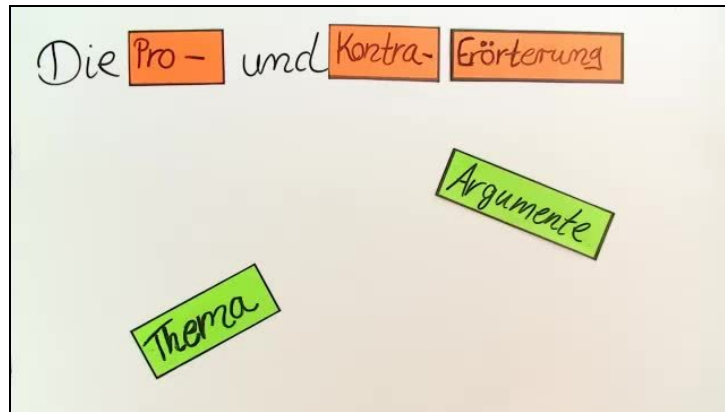 Die Pro- und Kontra- Erörterung
Argumente
Thema